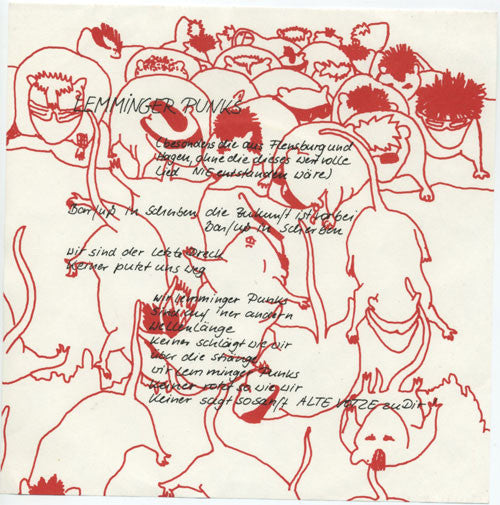 LEMMINGER PUNKS
(besonders die aus Flensburg und
Hagen, ohne die dieses wertvolle
Lied NIE entstanden wäre)
Bar/uß in Scherben, die Zukunft ist vorbei
Bar/uß in Scherben
wir sind der letzte Dreck
keiner putzt uns weg
wir lemminger Punks
sind auf 'ner andern
Wellenlänge
keiner schlägt wie wir
über die stränge
wir lemminger Punks
keiner rotzt so wie wir
keiner sagt so sanft ALTE VOTZE zu Dir